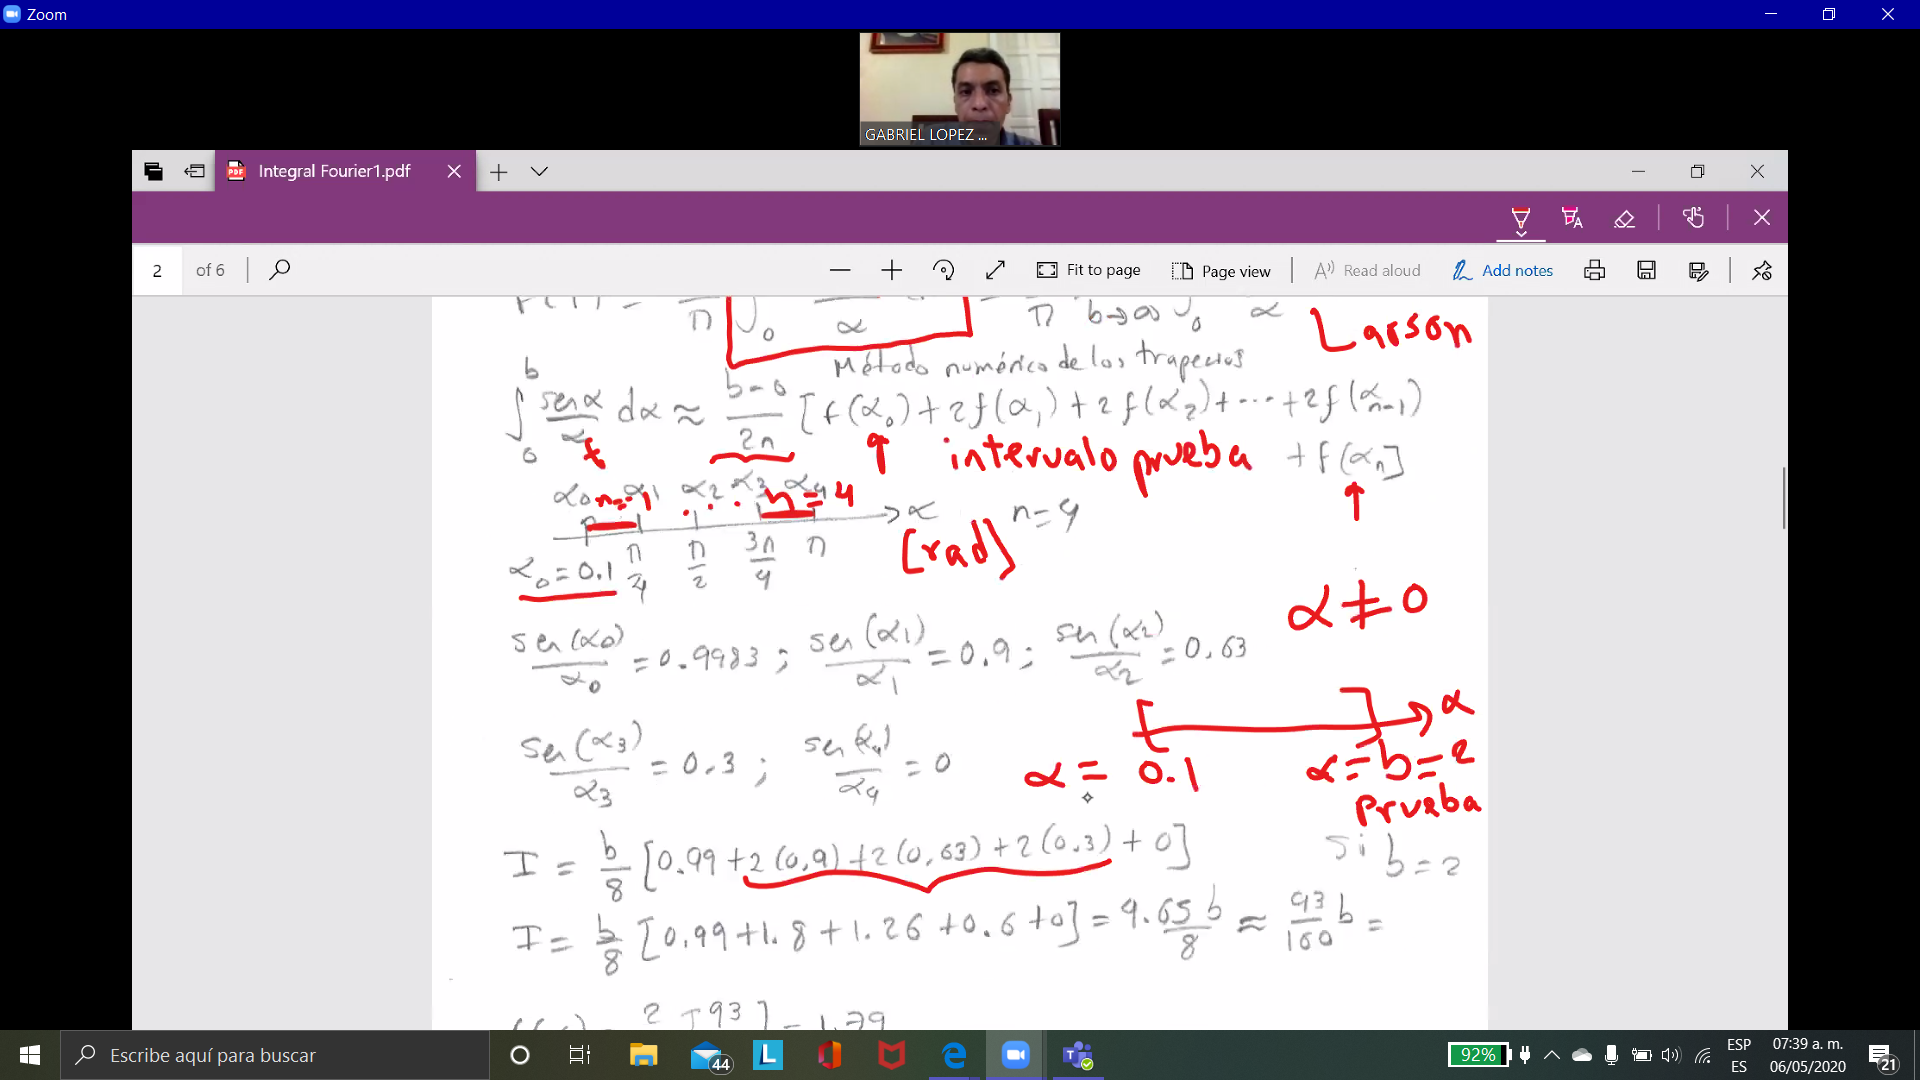 Zoom
GABRIEL LOPEZ ...
Integral Fourier1.pdf
2 of 6
Fit to page
Page view
Read aloud
Add notes
π ∫ 0 α
π b→∞ ∫ 0 α
Larson
Método numérico de los trapecios
∫ 0 b sen α / α dα ≈ b-0 / 2n [f(α0) + 2f(α1) + 2f(α2) + ... + 2f(αn-1)
intervalo prueba + f(αn]
α0 n=1 α1 α2 α3 α4 n=4
→α n=4
[rad]
π/4 π/2 3π/4 π
α0 = 0.1
α ≠ 0
sen(α0)/α0 = 0.9983 ; sen(α1)/α1 = 0.9 ; sen(α2)/α2 = 0.63
α
sen(α3)/α3 = 0.3 ; sen(α4)/α4 = 0
α = 0.1
α = b = 2
Prueba
I = b/8 [0.99 + 2(0,9) + 2(0,63) + 2(0.3) + 0]
si b = 2
I = b/8 [0.99 + 1.8 + 1.26 + 0.6 + 0] = 4.65 b/8 ≈ 93/160 b =
2 [93 ] = 1.79
Escribe aquí para buscar
44
92%
ESP
ES
07:39 a. m.
06/05/2020
21